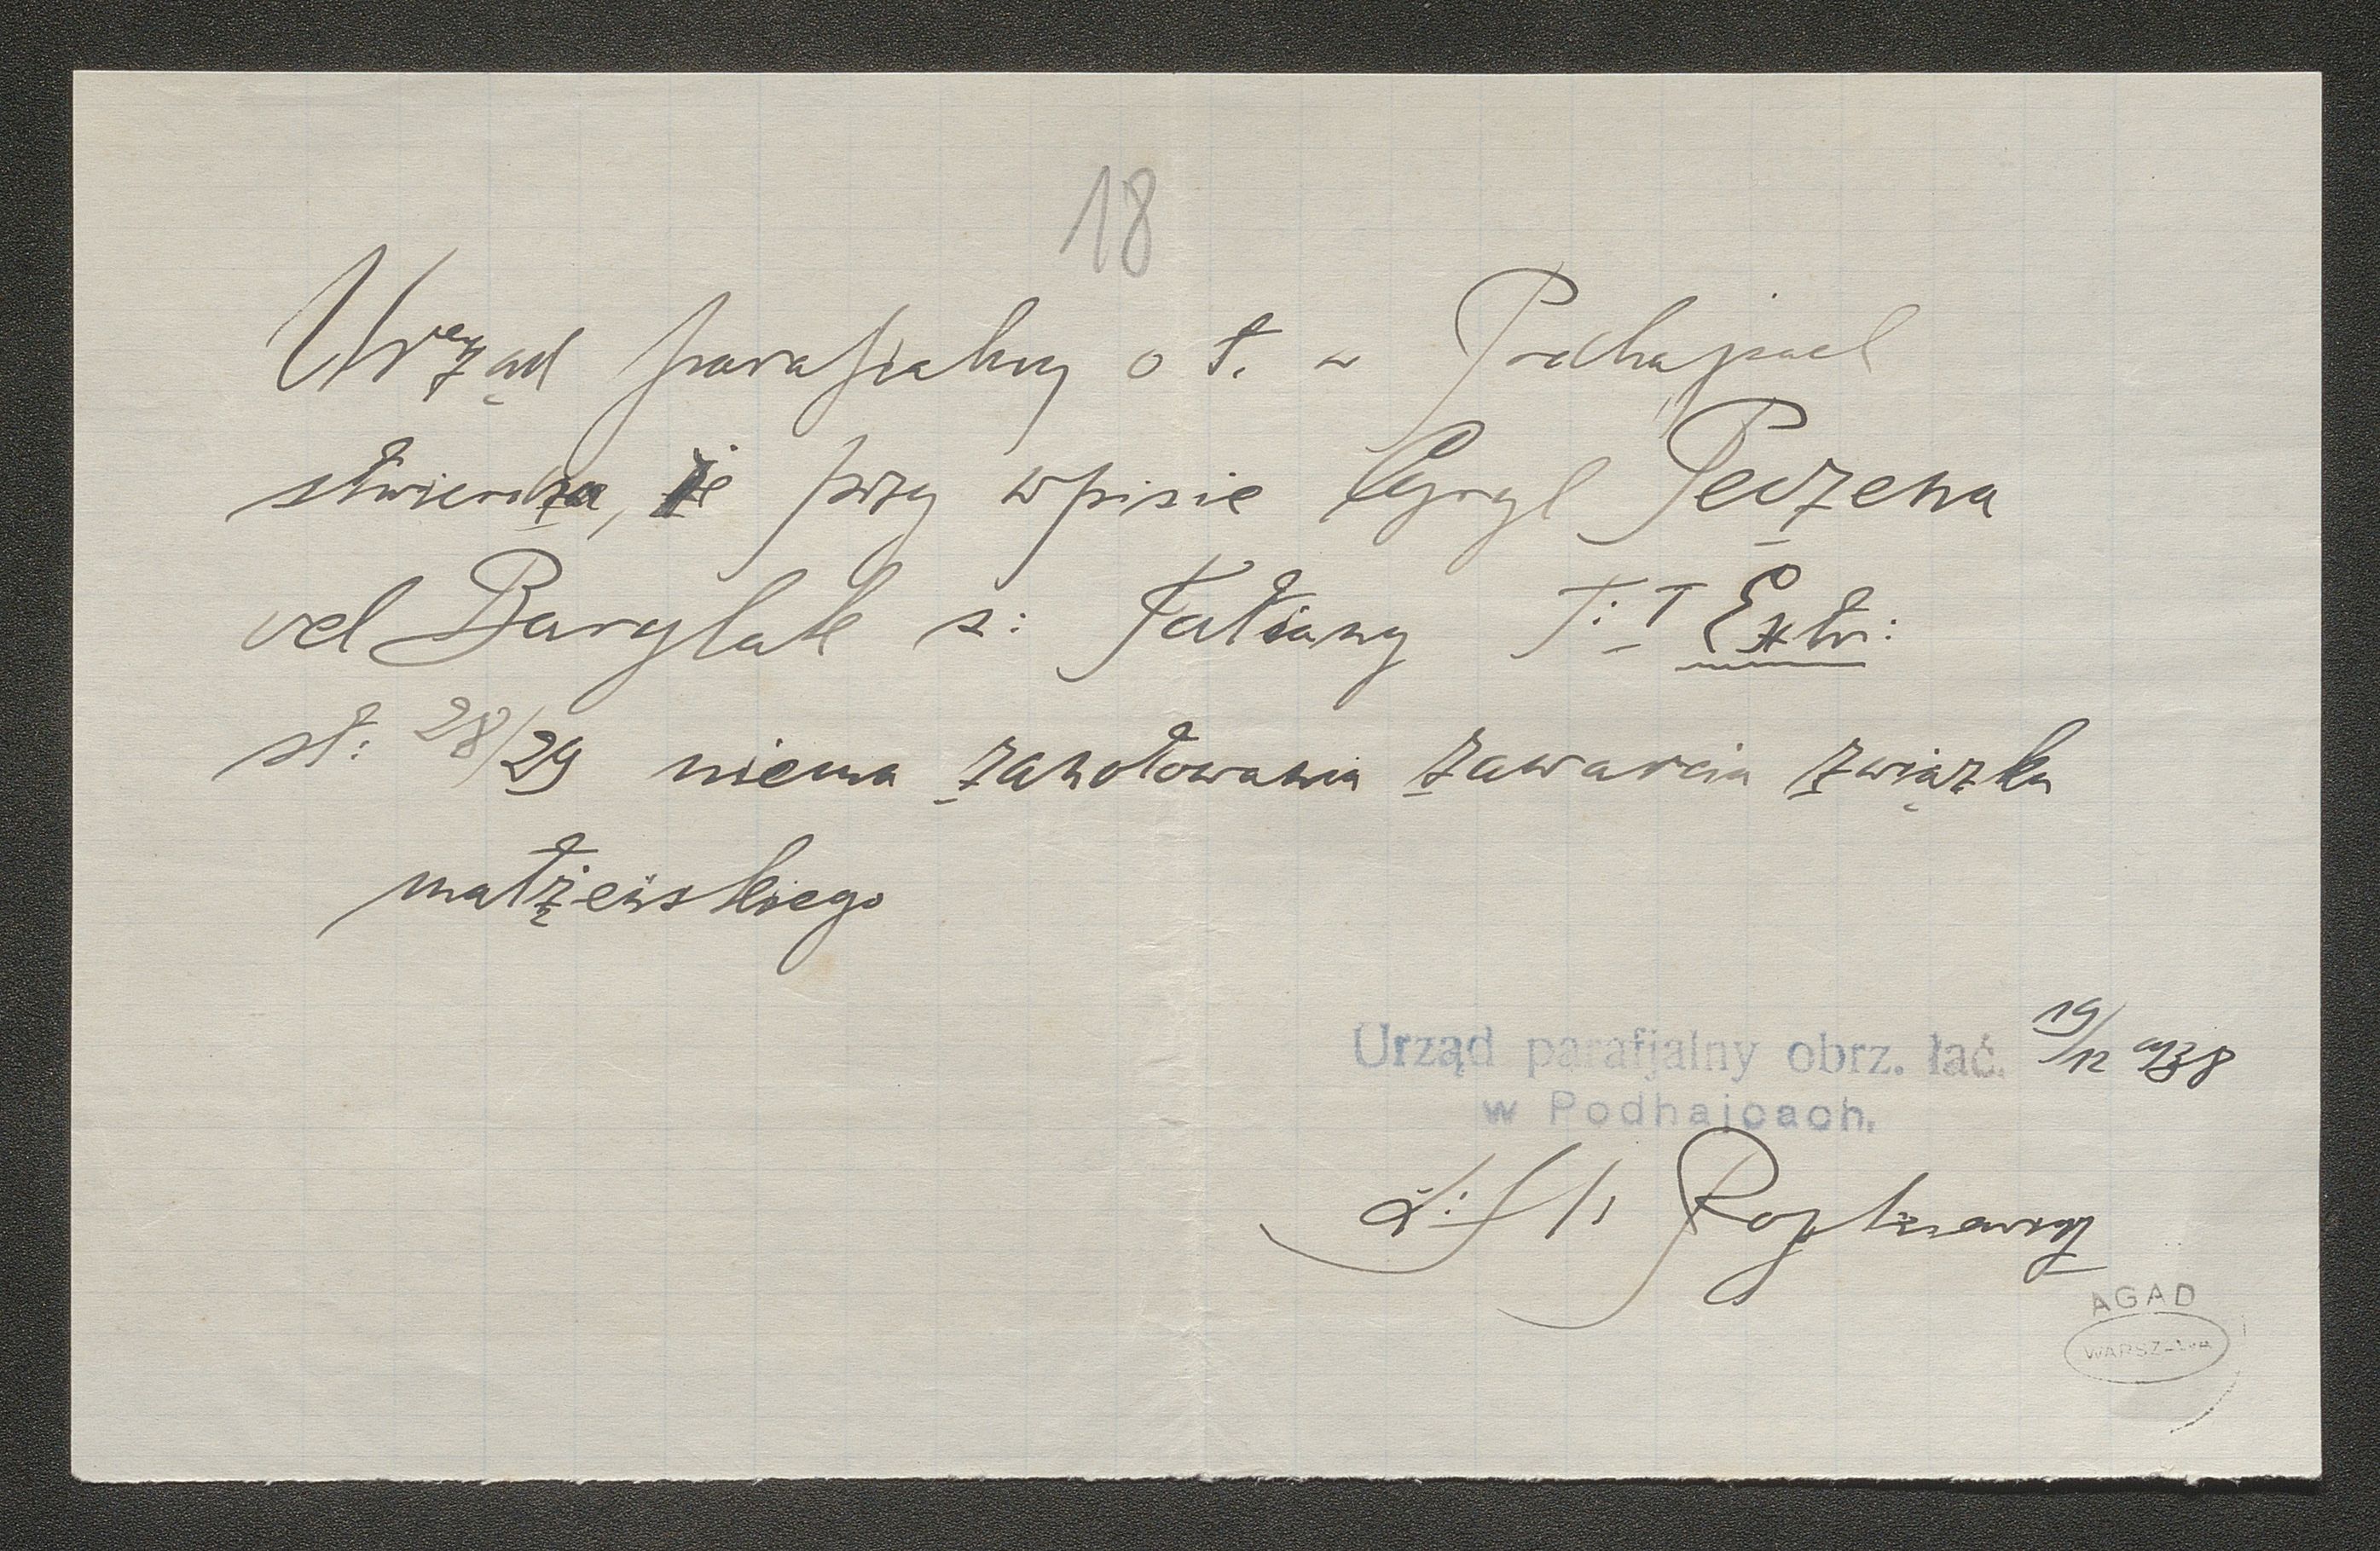 18
Urząd parafialny o ł. w Podhajcach
stwierdza, że przy wpisie Cyryl Peczena
vel Barylak s: Tatiany T: I Extr:
st: 28/29 niema zanotowania zawarcia związku
małżeńskiego
Urząd parafjalny obrz. łać. 19/12 938
w Podhajcach.
AGAD
WARSZAWA